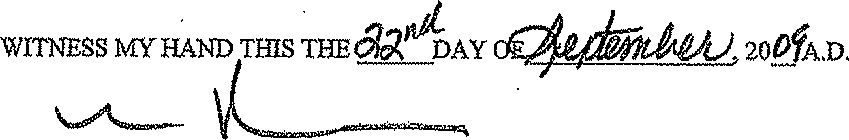 WITNESS MY HAND THIS THE 22nd DAY OF September, 2009 A.D.